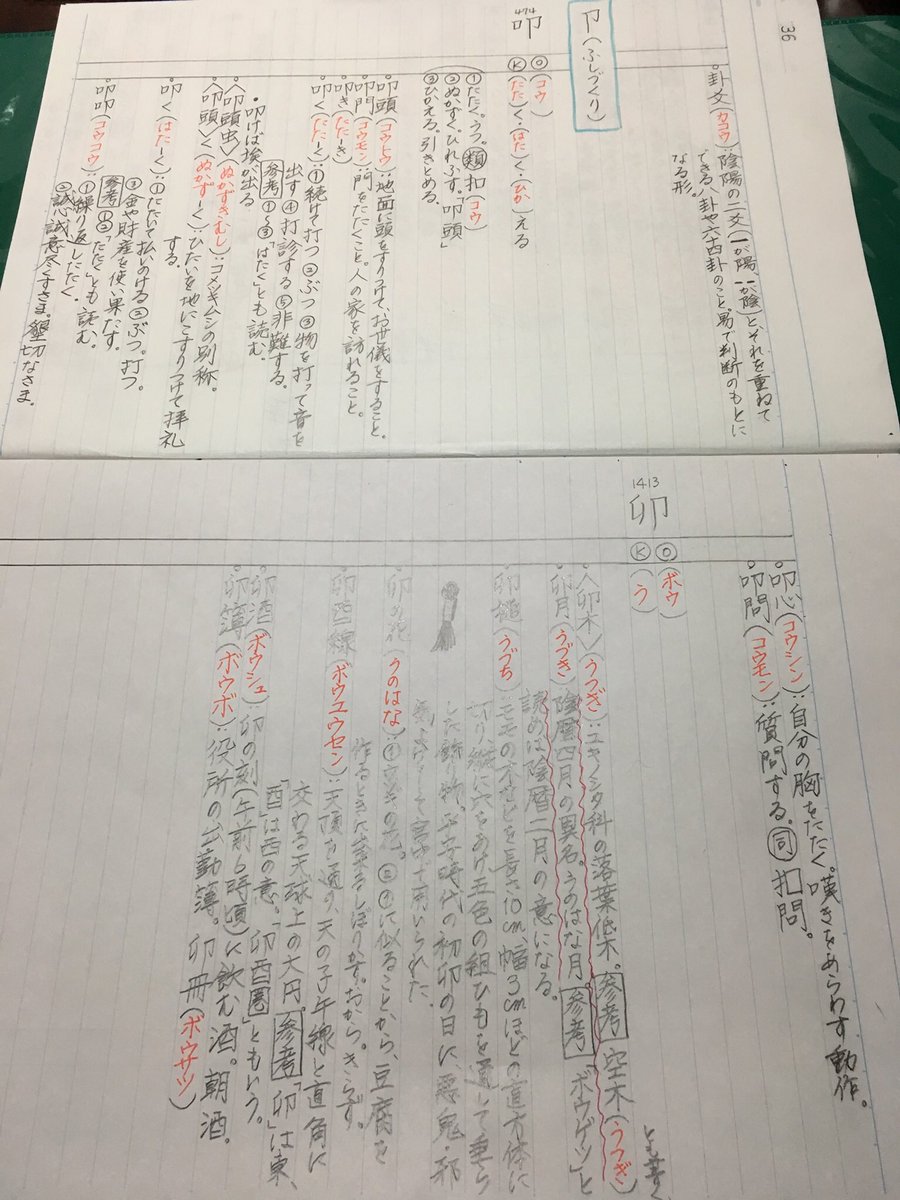 36
卦爻(カコウ):陰陽の二爻(⚊が陽、⚋が陰)と、それを重ねて
できる八卦や六十四卦のこと。易で判断のもとに
なる形。
卩(ふしづくり)
474
叩
Ⓞ(コウ)
Ⓚ(たた)く・(はた)く・(ひか)える
①たたく。うつ。類 扣(コウ)
②ぬかずく。ひれふす。「叩頭」
③ひかえる。引きとめる。
叩頭(コウトウ):地面に頭をすりつけて、お世儀をすること。
叩門(コウモン):門をたたくこと。人の家を訪れること。
叩き(たたーき)
叩く(たたーく):①続けて打つ ②ぶつ ③物を打って音を
出す ④打診する ⑤非難する。
参考 ①~③「はたく」とも読む。
・叩けば埃が出る
〈叩頭虫〉(ぬかずきむし):コメツキムシの別称。
〈叩頭〉く(ぬかずーく):ひたいを地にこすりつけて拝礼
する。
叩く(はたーく):①たたいて払いのける ②ぶつ。打つ。
③金や財産を使い果たす。
参考 ①②「たたく」とも読む。
叩叩(コウコウ):①繰り返したたく。
②誠心誠意尽くすさま。懇切なさま。
叩心(コウシン):自分の胸をたたく。嘆きをあらわす動作。
叩問(コウモン):質問する。同 扣問。
1413
卯
Ⓞ(ボウ)
Ⓚ(う)
〈卯木〉(うつぎ):ユキノシタ科の落葉低木。参考 空木(うつぎ)
とも書く
卯月(うづき):陰暦四月の異名。うのはな月。参考「ボウゲツ」と
読めば陰暦二月の意になる。
卯槌(うづち):モモの木などを長さ10cm、幅3cmほどの直方体に
切り、縦に穴をあけ五色の組ひもを通して垂ら
した飾り物。平安時代の初卯の日に、悪鬼・邪
気よけとして宮中で用いられた。
卯の花(うのはな):①卯木の花。②①に似ることから、豆腐を
作るときに出るしぼりかす。おから。きらず。
卯酉線(ボウユウセン):天頂を通り、天の子午線と直角に
交わる天球上の大円。参考「卯」は東、
「酉」は西の意。「卯酉圏」ともいう。
卯酒(ボウシュ):卯の刻(午前6時頃)に飲む酒。朝酒。
卯簿(ボウボ):役所の出勤簿。卯冊(ボウサツ)